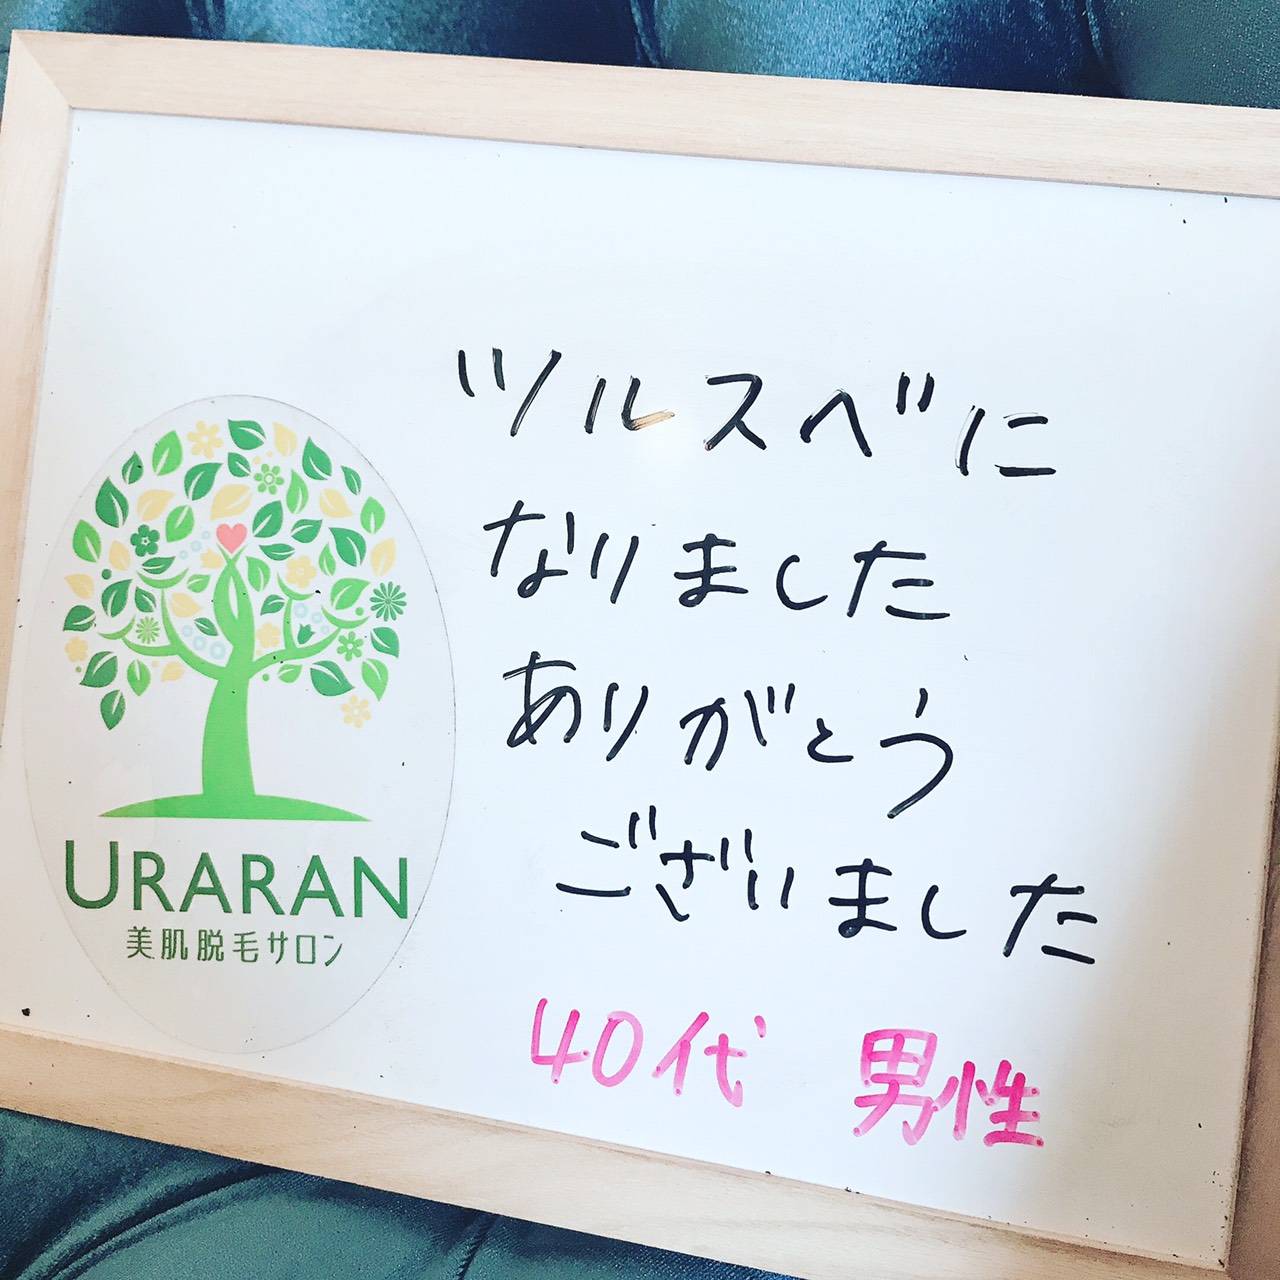 ツルスベに
なりました
ありがとう
ございました
40代 男性
URARAN
美肌脱毛サロン